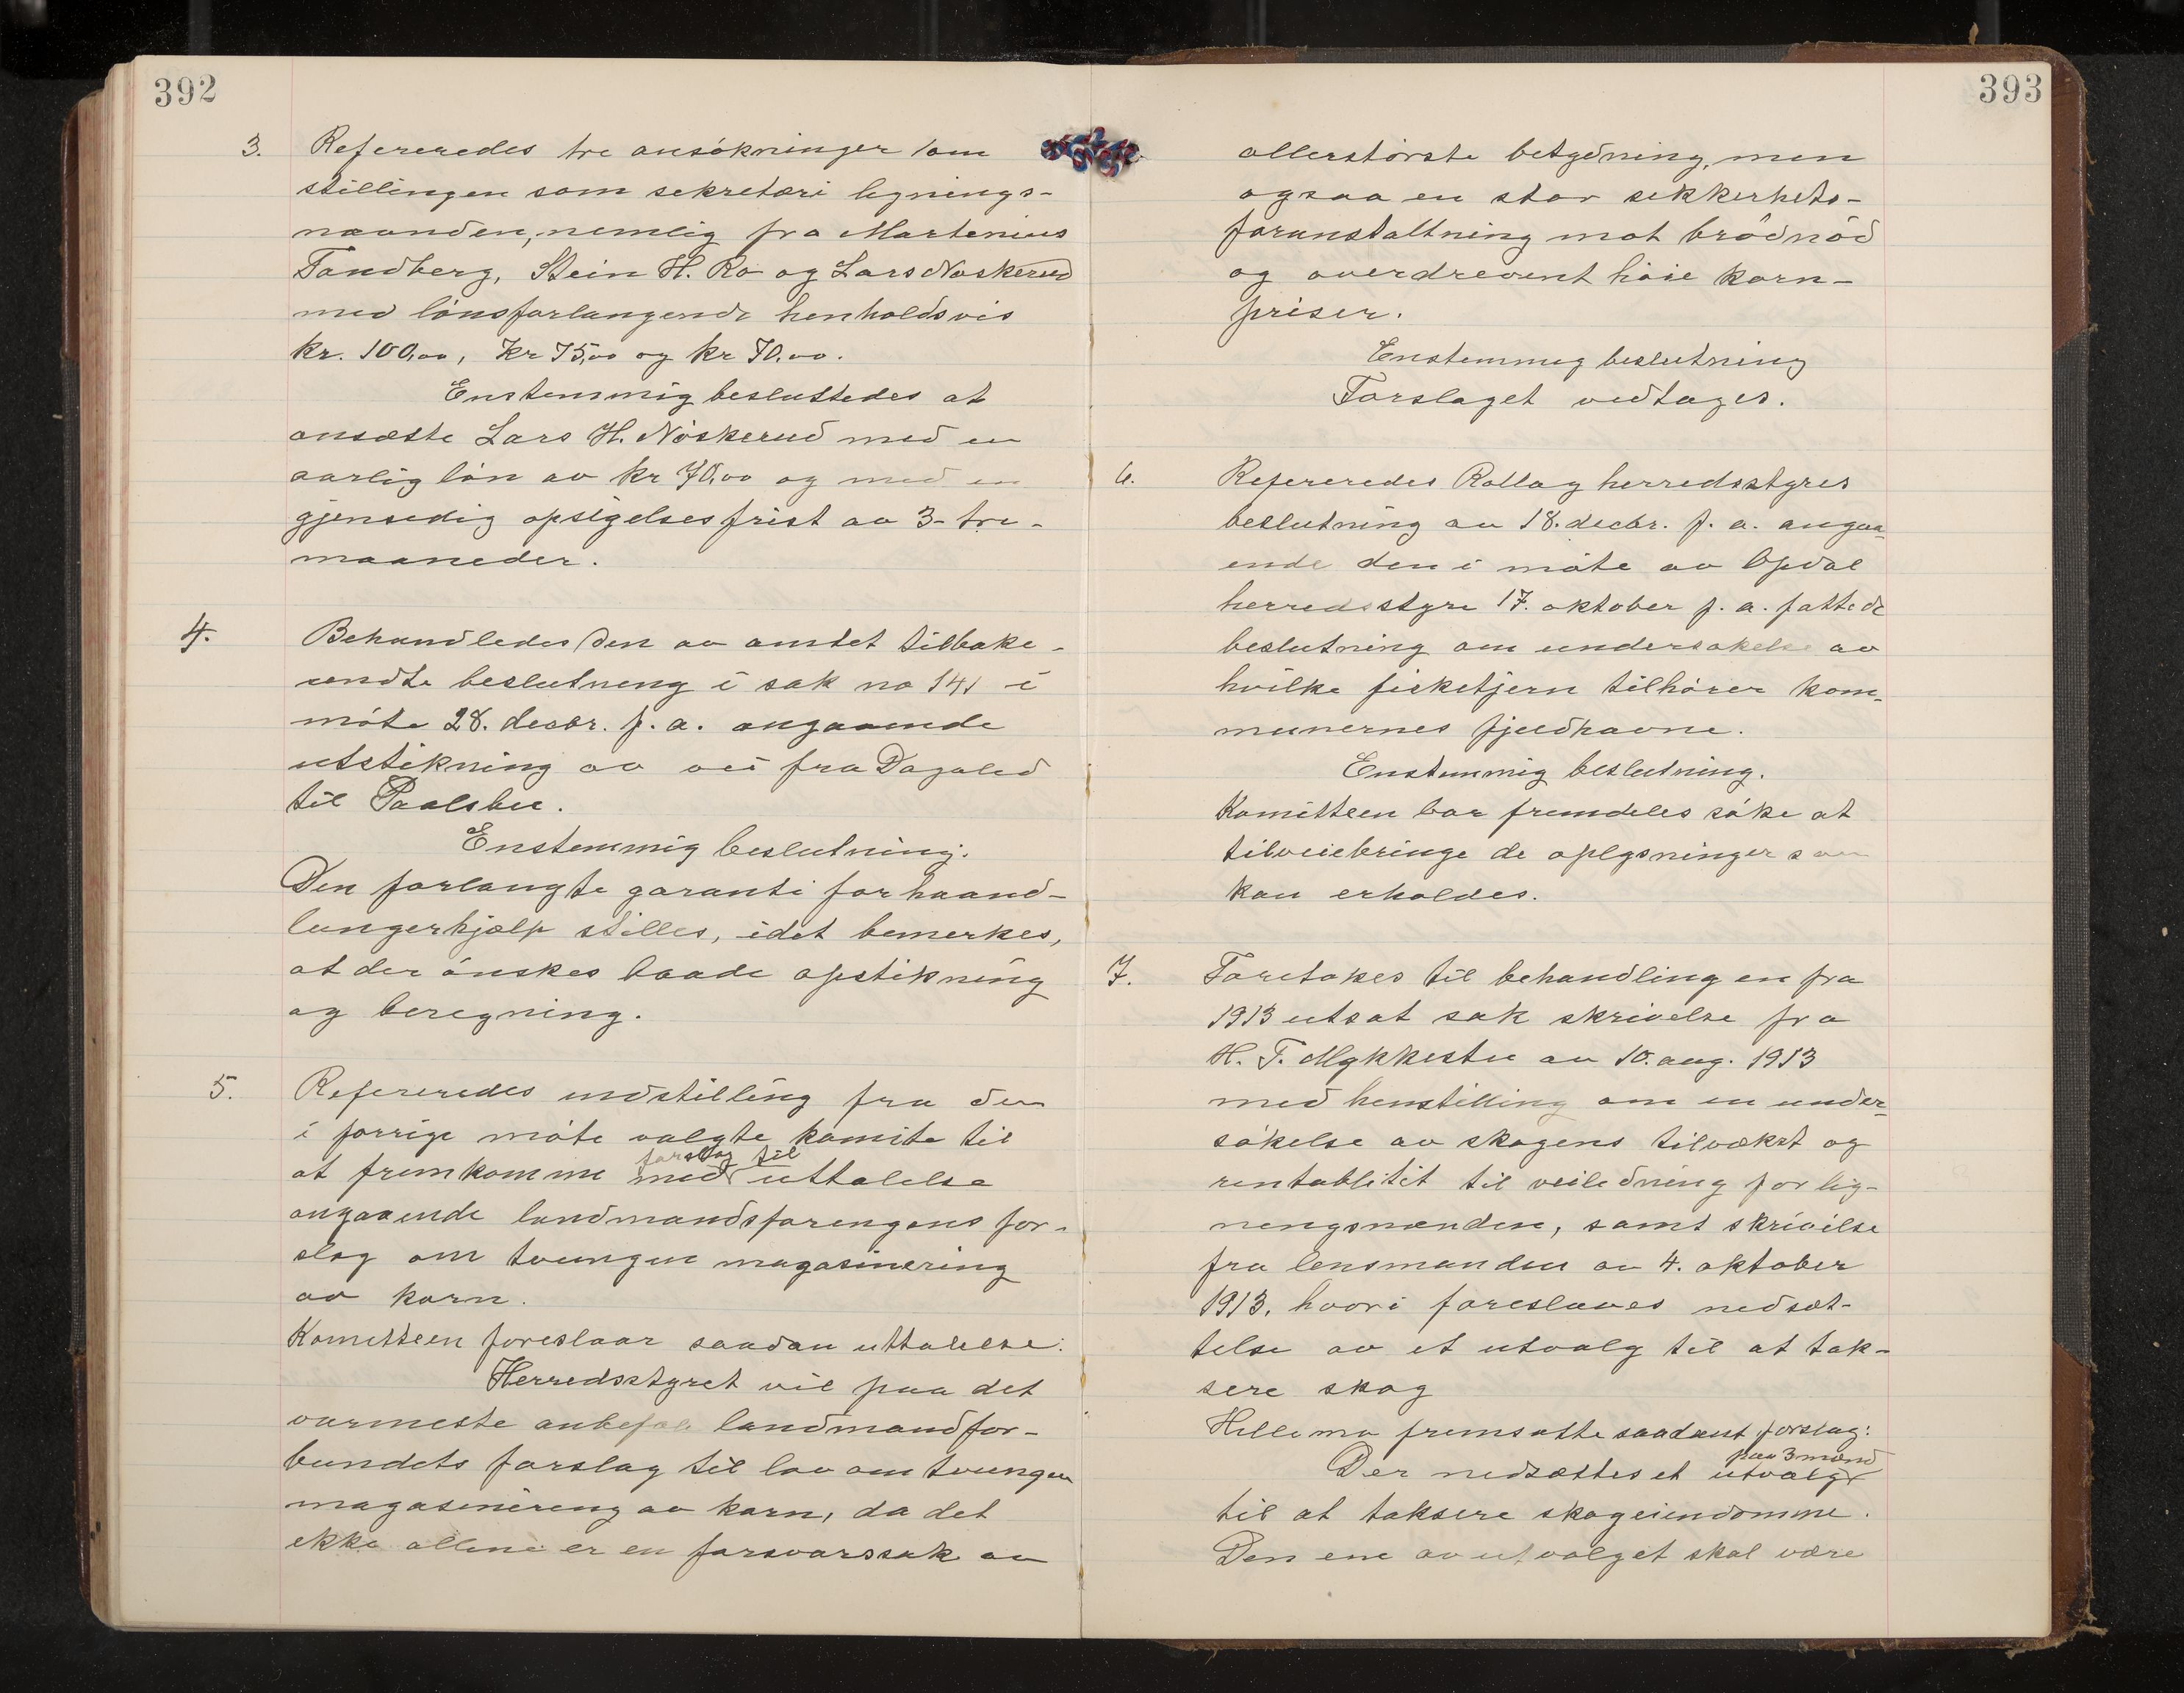 392
3. Refereredes tre ansökninger om
stillingen som sekretær i lignings-
nævnden, nemlig fra Martenius
Tandberg, Stein H. Ro og Lars Nöskerud
med lönsforlangende henholdsvis
kr. 100,00, Kr 75,00 og kr 70,00.
Enstemmig besluttedes at
ansætte Lars H. Nöskerud med en
aarlig lön av kr 70,00 og med en
gjensedig opsigelsesfrist av 3- tre-
maaneder.
4. Behandledes den av amtet tilbake-
sendte beslutning i sak no 141 i
möte 28. decbr. f. a. angaaende
utstikning av vei fra Dagalid
til Paalsbu.
Enstemmig beslutning.
Den forlangte garanti for haand-
langerhjælp stilles, idet bemerkes,
at der önskes baade opstikning
og beregning.
5. Refereredes indstilling fra den
i forrige möte valgte komite til
forslag til
at fremkomme med uttalelse
angaaende landmandsforengens for-
slag om tvungen magasinering
av korn.
Komitteen foreslaar saadan uttalelse:
Herredsstyret vil paa det
varmeste anbefale landmandfor-
bundets forslag til lov om tvungen
magasinering av korn, da det
ikke allene er en forsvarssak av
393
allerstörste betydning, men
ogsaa en stor sikkerhets-
foranstaltning mot brödnöd
og overdrevent höie korn-
priser.
Enstemmig beslutning
Forslaget vedtages.
6. Refereredes Rollag herredsstyres
beslutning av 18. decbr. f. a. angaa-
ende den i möte av Opdal
herredsstyre 17. oktober f. a. fattede
beslutning om undersökelse av
hvilke fisketjern tilhörer kom-
munernes fjeldhavne.
Enstemmig beslutning.
Komitteen bör fremdeles söke at
tilveiebringe de oplysninger som
kan erholdes.
7. Foretokes til behandling en fra
1913 utsat sak skrivelse fra
H. T. Mykkestu av 10. aug. 1913
med henstilling om en under-
sökelse av skogens tilvækst og
rentablitet til veiledning for lig-
nengsnænden, samt skrivelse
fra lensmanden av 4. oktober
1913, hvori foreslaaes nedsæt-
telse av et utvalg til at tak-
sere skog
Hellemo fremsatte saadant forslag:
paa 3 mænd
Der nedsættes et utvalg
til at taksere skogeiendomme.
Den ene av utvalget skal være